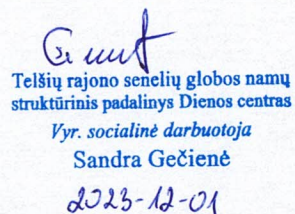 Telšių rajono senelių globos namų
struktūrinis padalinys Dienos centras
Vyr. socialinė darbuotoja
Sandra Gečienė
2023-12-01